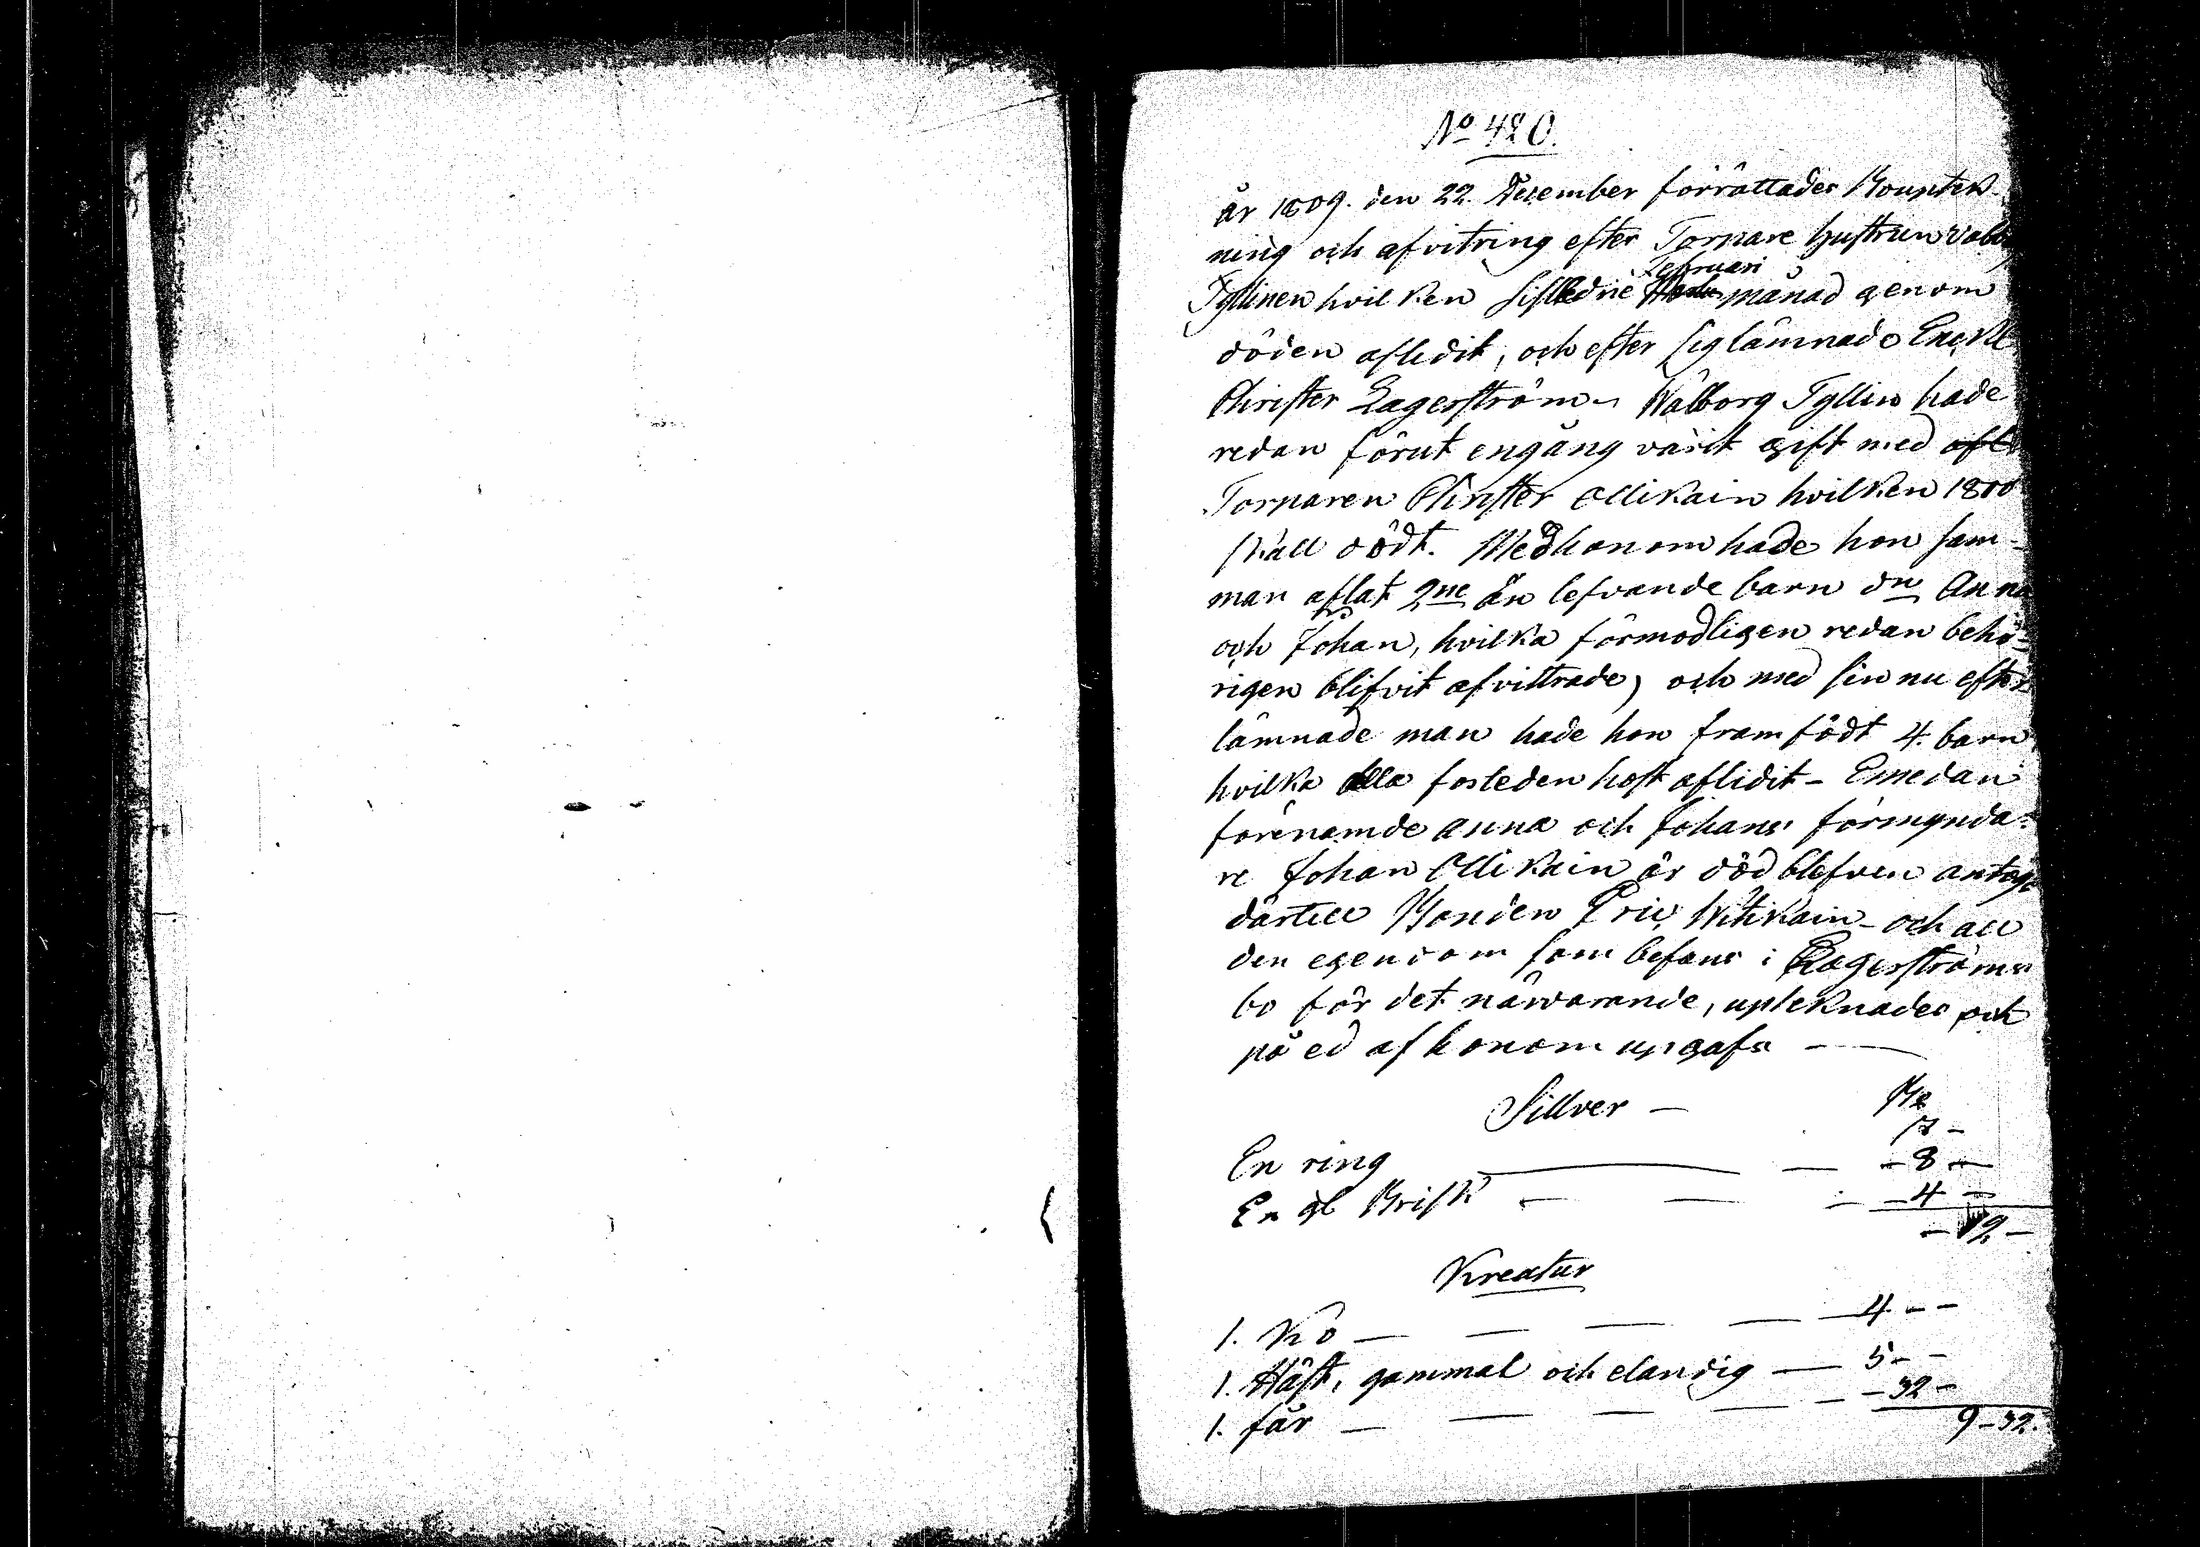 No 420.
år 1809. den 22. December förrättades Bouptek-
ning och afvitring efter Torpare hustrun
Tyllinen hvilken sistledne Februari månad genom
döden aflidit, och efter sig lämnade
Christer Lagerström. Walborg Tyllin hade
redan förut engång varit gift med
Torparen Christer Ollikain hvilken 1800
skall dödt. Med honom hade hon sam-
man aflat 2ne än lefvande barn Anna
och Johan, hvilka förmodligen redan behö-
rigen blifvit afvittrade, och med sin nu efter
lämnade man hade hon framfödt 4. barn
hvilka alla aflidit - Emedan
förenämde Anna och Johans förmynda-
re Johan Ollikain är död blefven antog
därtill Bonden Eric Witikain - och all
den egendom som befans i Lagerströms
bo för det närvarande, upteknades och
på ed af honom upgafs -
Sillver -
En ring - 8 -
En gl Brisk - 4 -
Kreatur
1. Ko - 4 - -
1. Häst, gammal och elandig - 5 - -
1. får - 32 -
9 - 32.